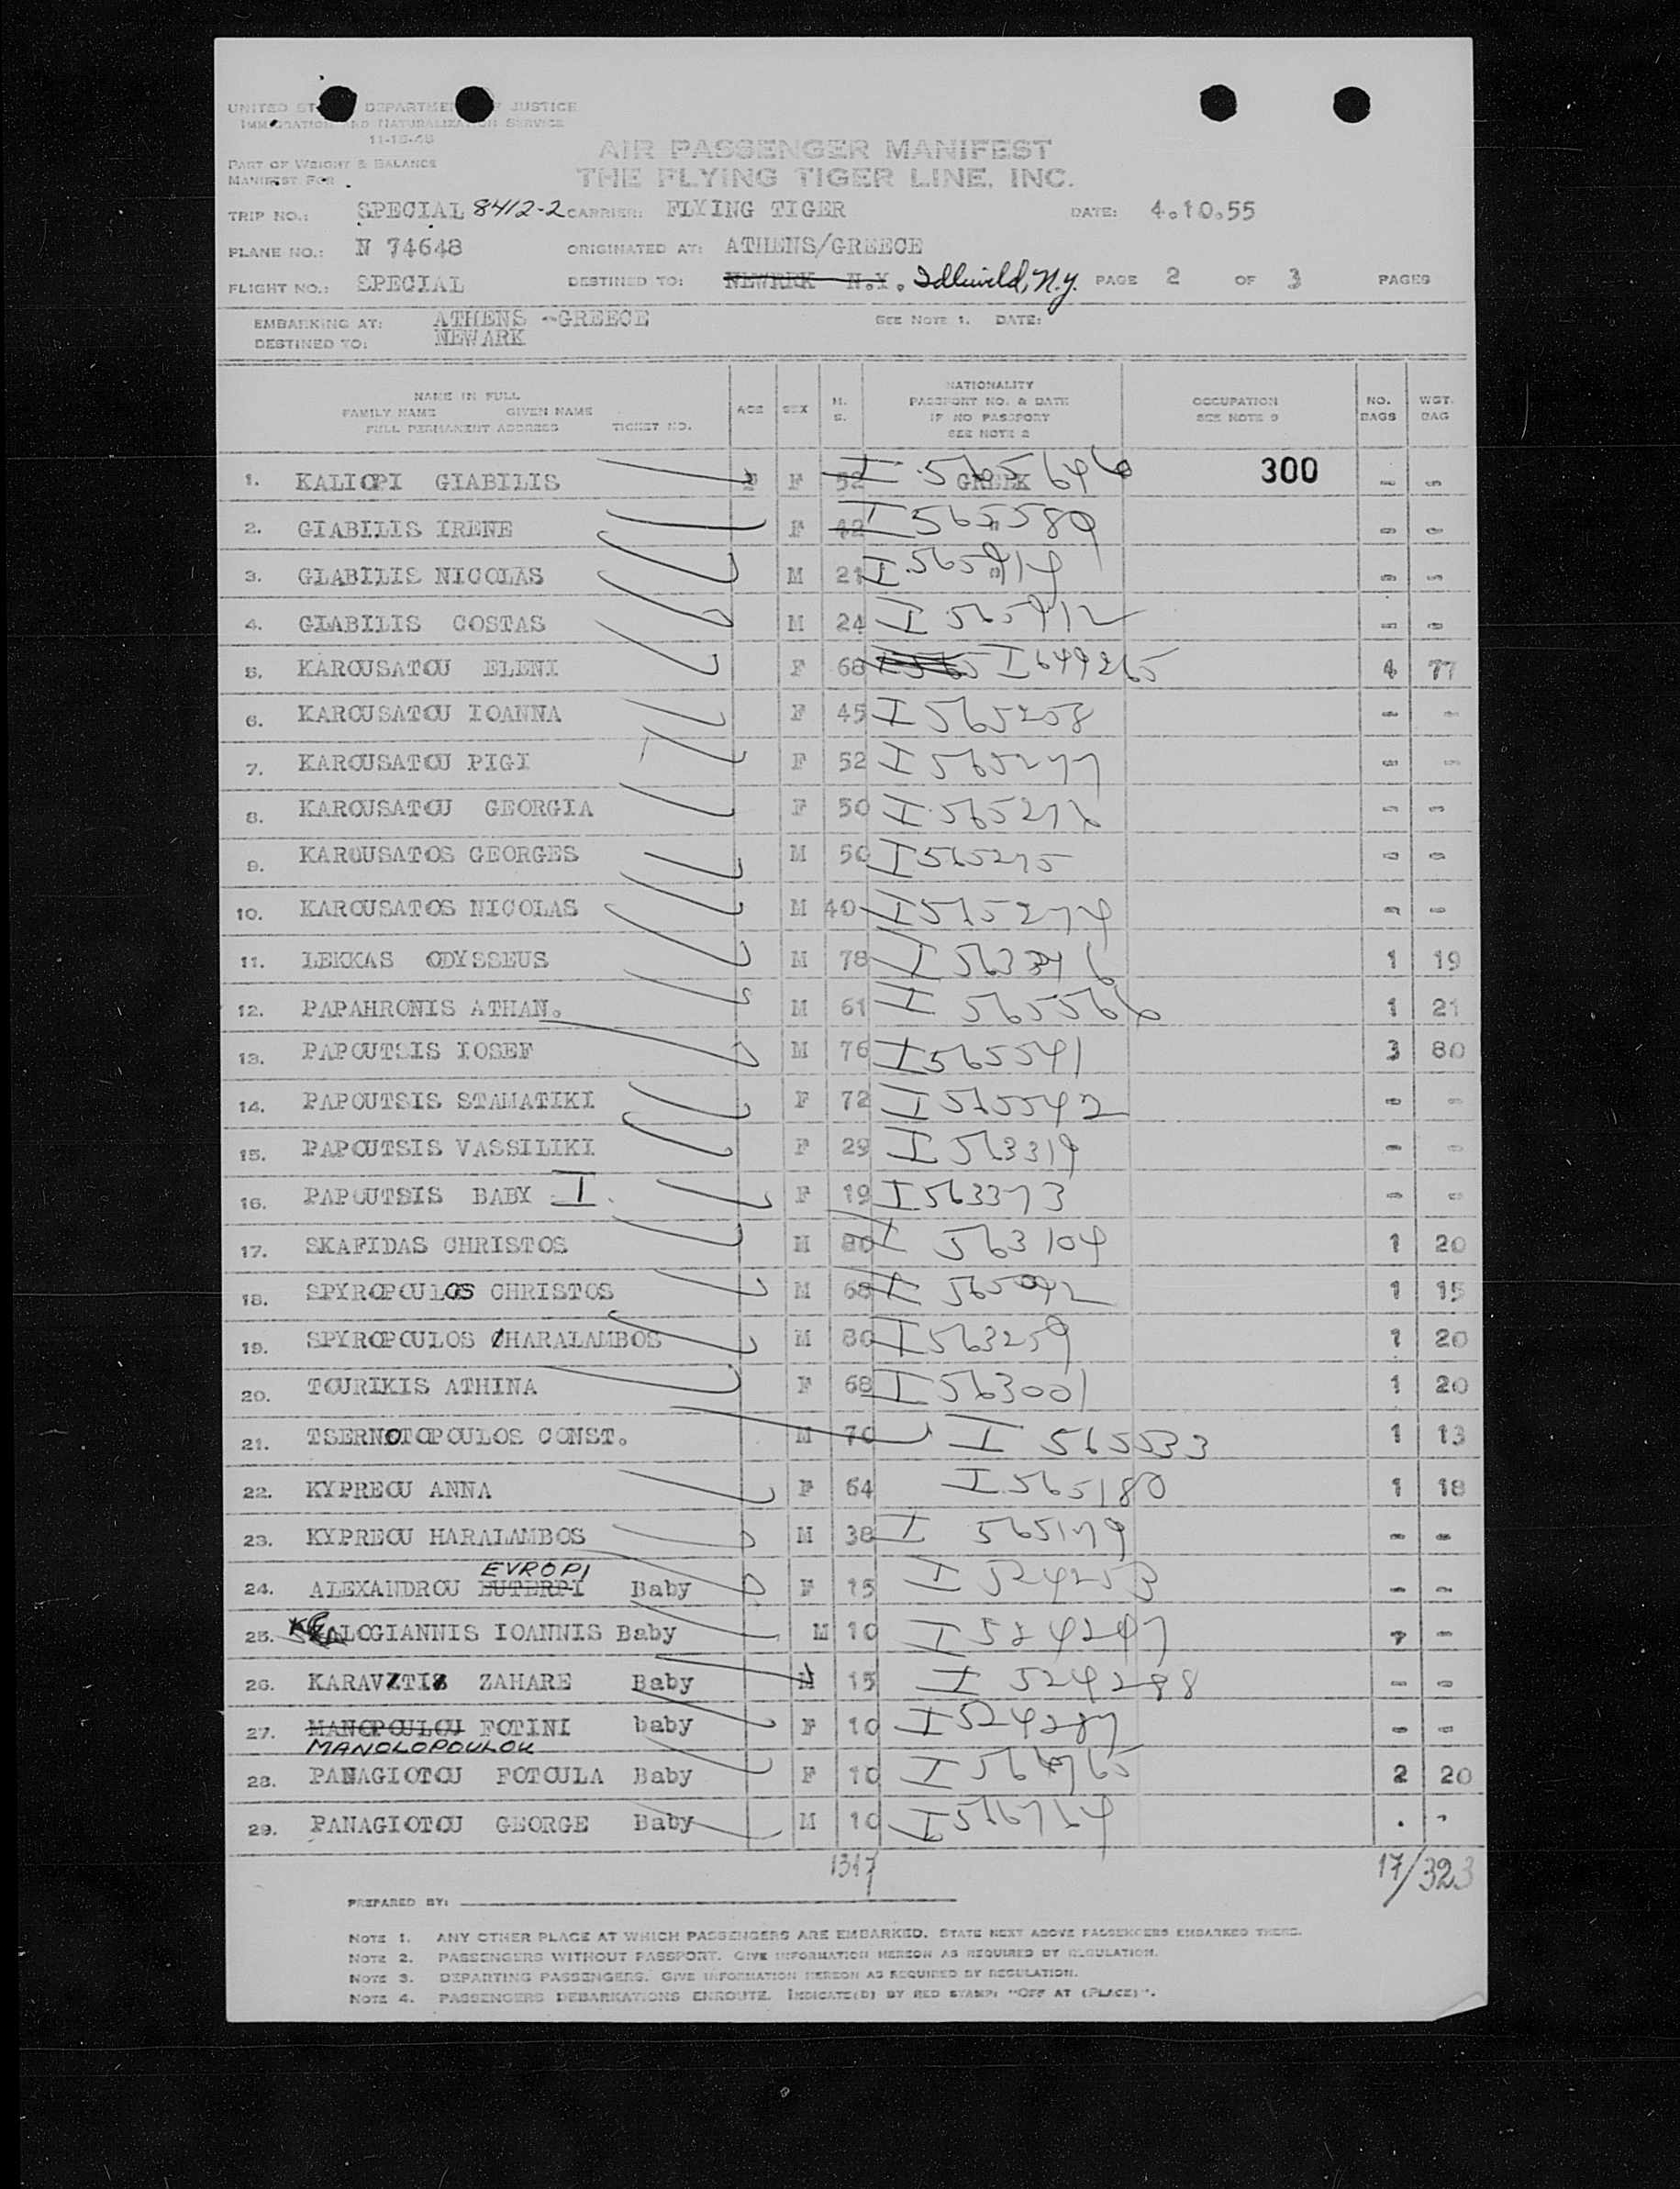 UNITED ST DEPARTMENT OF JUSTICE
IMMIGRATION AND NATURALIZATION SERVICE
11-15-48
PART OF WEIGHT & BALANCE
MANIFEST FOR
AIR PASSENGER MANIFEST
THE FLYING TIGER LINE, INC.
TRIP NO.: SPECIAL 8412-2 CARRIER: FLYING TIGER DATE: 4.10.55
PLANE NO.: N 74648 ORIGINATED AT: ATHENS/GREECE
FLIGHT NO.: SPECIAL DESTINED TO: NEWARK N.Y. Idlewild, N.Y. PAGE 2 OF 3 PAGES
EMBARKING AT: ATHENS -GREECE SEE NOTE 1. DATE:
DESTINED TO: NEWARK
NAME IN FULL
FAMILY NAME GIVEN NAME
FULL PERMANENT ADDRESS TICKET NO.
AGE SEX M. S.
NATIONALITY
PASSPORT NO. & DATE
IF NO PASSPORT
SEE NOTE 2
OCCUPATION
SEE NOTE 3
NO. BAGS
WGT. BAG
1. KALIOPI GIABILIS F F 52 GREEK I 565646 300 - -
2. GIABILIS IRENE F 42 " I 565589 - -
3. GIABILIS NICOLAS M 21 I 565914 - -
4. GIABILIS COSTAS M 24 I 565912 - -
5. KAROUSATOU ELENI F 68 I 649265 4 77
6. KAROUSATOU IOANNA F 45 I 565258 - -
7. KAROUSATOU PIGI F 52 I 565277 - -
8. KAROUSATOU GEORGIA F 50 I 565276 - -
9. KAROUSATOS GEORGES M 50 I 565275 - -
10. KAROUSATOS NICOLAS M 40 I 565274 - -
11. LEKKAS ODYSSEUS M 78 1 19
12. PAPAHRONIS ATHAN. M 61 I 565566 1 21
13. PAPOUTSIS IOSEF M 76 I 565541 3 80
14. PAPOUTSIS STAMATIKI F 72 I 565542 - -
15. PAPOUTSIS VASSILIKI F 29 I 563319 - -
16. PAPOUTSIS BABY I. F 19 I 563373 - -
17. SKAFIDAS CHRISTOS M 80 I 563104 1 20
18. SPYROPOULOS CHRISTOS M 68 1 15
19. SPYROPOULOS CHARALAMBOS M 80 I 563259 1 20
20. TOURIKIS ATHINA F 68 I 563001 1 20
21. TSERNOTOPOULOS CONST. M 70 I 565533 1 13
22. KYPREOU ANNA F 64 I 565180 1 18
23. KYPREOU HARALAMBOS M 38 I 565179 - -
EVROPI
24. ALEXANDROU EUTERPI Baby F 15 I 524253 - -
25. KALOGIANNIS IOANNIS Baby M 10 I 524247 -
26. KARAVITIS ZAHARE Baby M 15 I 524298 - -
27. MANOPOULOU FOTINI baby F 10 I 524287 - -
MANOLOPOULOU
28. PANAGIOTOU FOTOULA Baby F 10 2 20
29. PANAGIOTOU GEORGE Baby M 10 I 566764
1317 17/323
PREPARED BY:
NOTE 1. ANY OTHER PLACE AT WHICH PASSENGERS ARE EMBARKED. STATE NEXT ABOVE PASSENGERS EMBARKED THERE.
NOTE 2. PASSENGERS WITHOUT PASSPORT. GIVE INFORMATION HEREON AS REQUIRED BY REGULATION.
NOTE 3. DEPARTING PASSENGERS. GIVE INFORMATION HEREON AS REQUIRED BY REGULATION.
NOTE 4. PASSENGERS DEBARKATIONS ENROUTE. INDICATE(D) BY RED STAMP: "OFF AT (PLACE)".